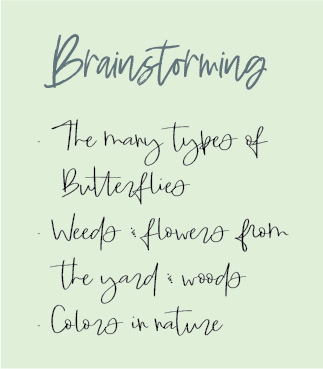 Brainstorming
· The many types of
Butterflies
· Weeds & flowers from
the yard & woods
· Colors in nature